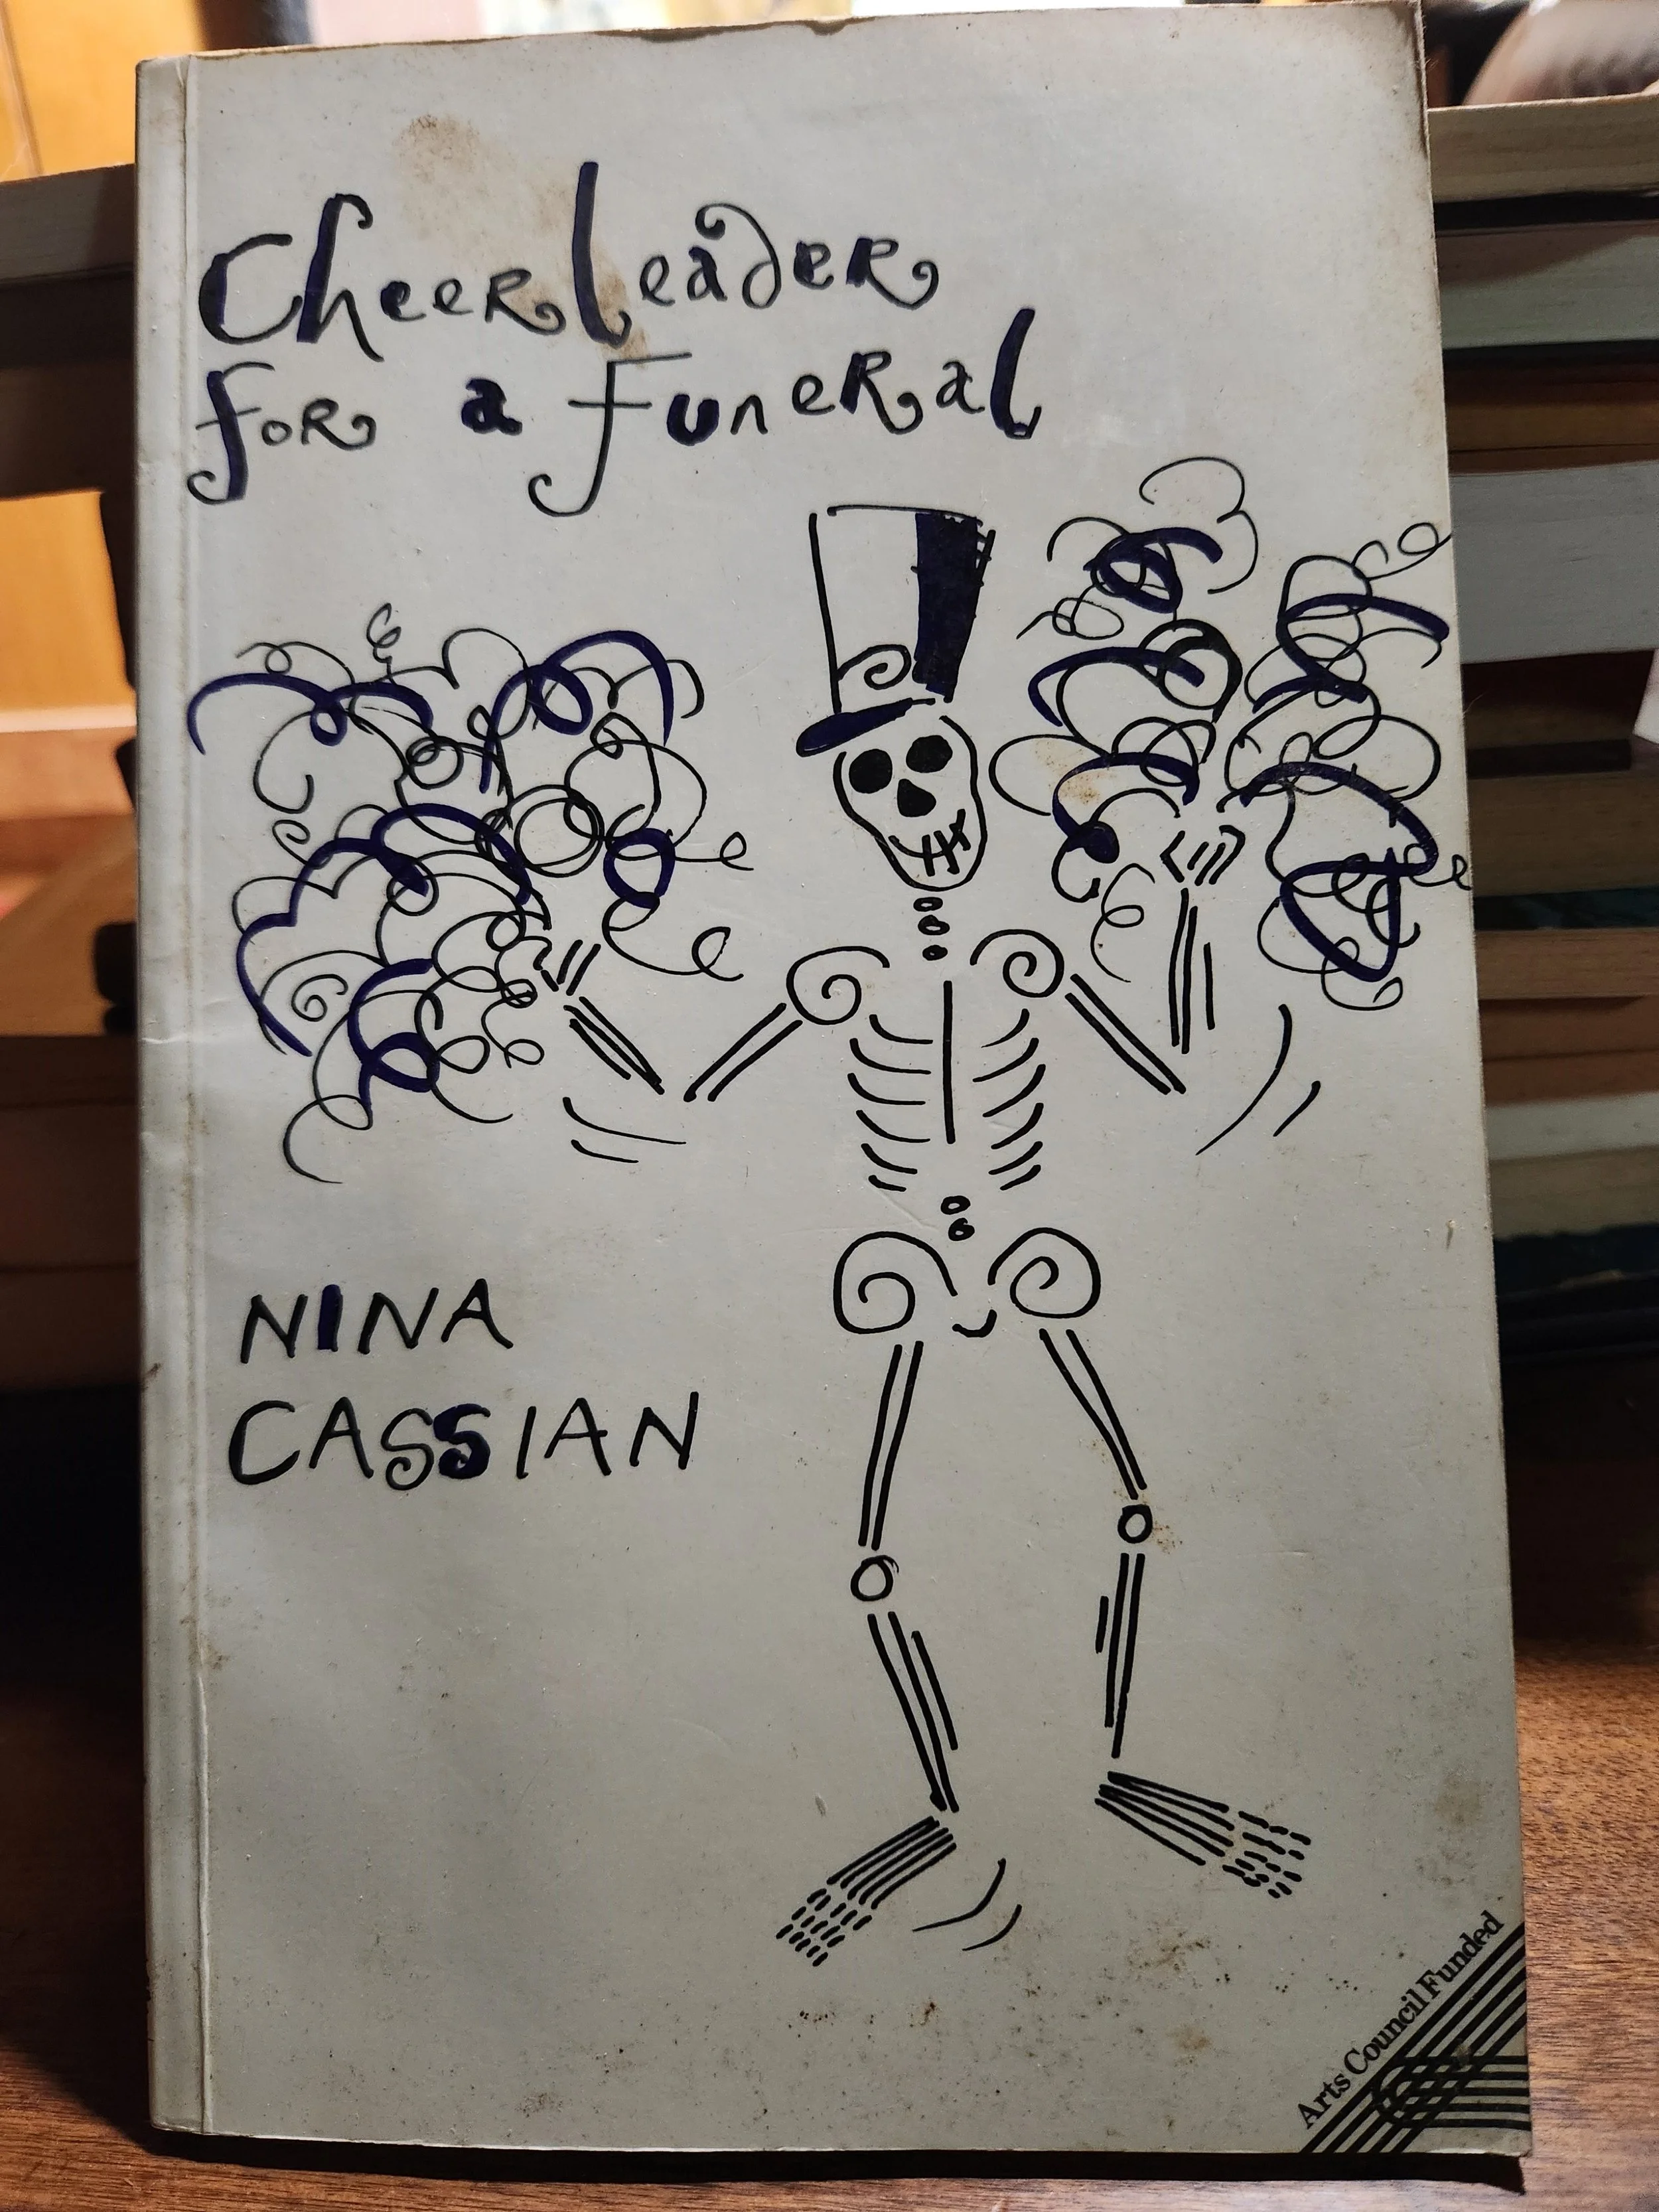 Cheerleader
for a funeral
NINA
CASSIAN
Arts Council Funded